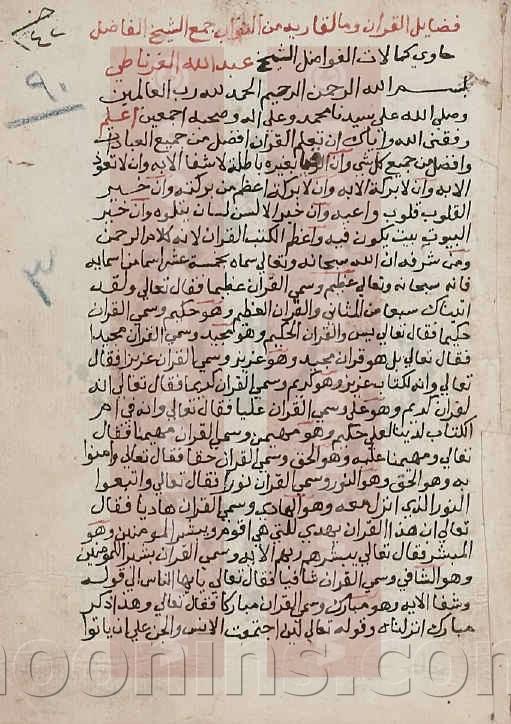 فضايل القران وما لقاريه من الثواب جمع الشيخ الفاضل
حاوي كمالات الفواضل الشيخ عبد الله الغرناطي
بسم الله الرحمن الرحيم الحمد لله رب العالمين
وصلى الله على سيدنا محمد وعلى اله وصحبه اجمعين اعلم
وفقني الله واياك ان تعلم القران افضل من جميع العبادات
وافضل من جميع كل شي وان بغيره باطلة لا شفا الا به وان لا تعوذ
الا به وان لا بركة الا به وان لا بركة اعظم من بركته وان خير
القلوب قلوب واعيه وان خير الالسن لسان يتلوه وان خير
البيوت بيت يكون فيه واعظم الكتب القران لانه كلام الرحمن
ومن شرفه ان الله سبحانه وتعالى سماه بخمسة عشر اسما من اسمايه
فانه سبحانه وتعالى عظيم وسمي القران عظيما فقال تعالى ولقد
اتيناك سبعا من المثاني والقران العظيم وهو حكيم وسمي القران
حكيما فقال تعالى يس والقران الحكيم وهو مجيد وسمي القران مجيدا
فقال تعالى بل هو قران مجيد وهو عزيز وسمي القران عزيز فقال
تعالى وانه لكتاب عزيز وهو كريم وسمي القران كريما فقال تعالى انه
لقران كريم وهو علي وسمي القران عليا فقال تعالى وانه في ام
الكتاب لدينا لعلي حكيم وهو مهيمن وسمي القران مهيمنا فقال
تعالى ومهيمنا عليه وهو الحق وسمي القران حقا فقال تعالى وامنوا
به وهو الحق وهو النور وسمي القران نورا فقال تعالى واتبعوا
النور الذي انزل معه وهو الهادي وسمي القران هاديا فقال
تعالى ان هذا القران يهدي للتي هي اقوم ويبشر المومنين وهو
المبشر فقال تعالى يبشرهم ربهم الايه وسمي القران بشير المومنين
وهو الشافي وسمي القران شافيا فقال تعالى يايها الناس الى قوله
وشفا الايه وهو مبارك وسمي القران مباركا فقال تعالى وهذا ذكر
مبارك انزلناه وقوله تعالى لين اجتمعت الانس والجن على ان ياتوا
٩٠
٣
moonins.com